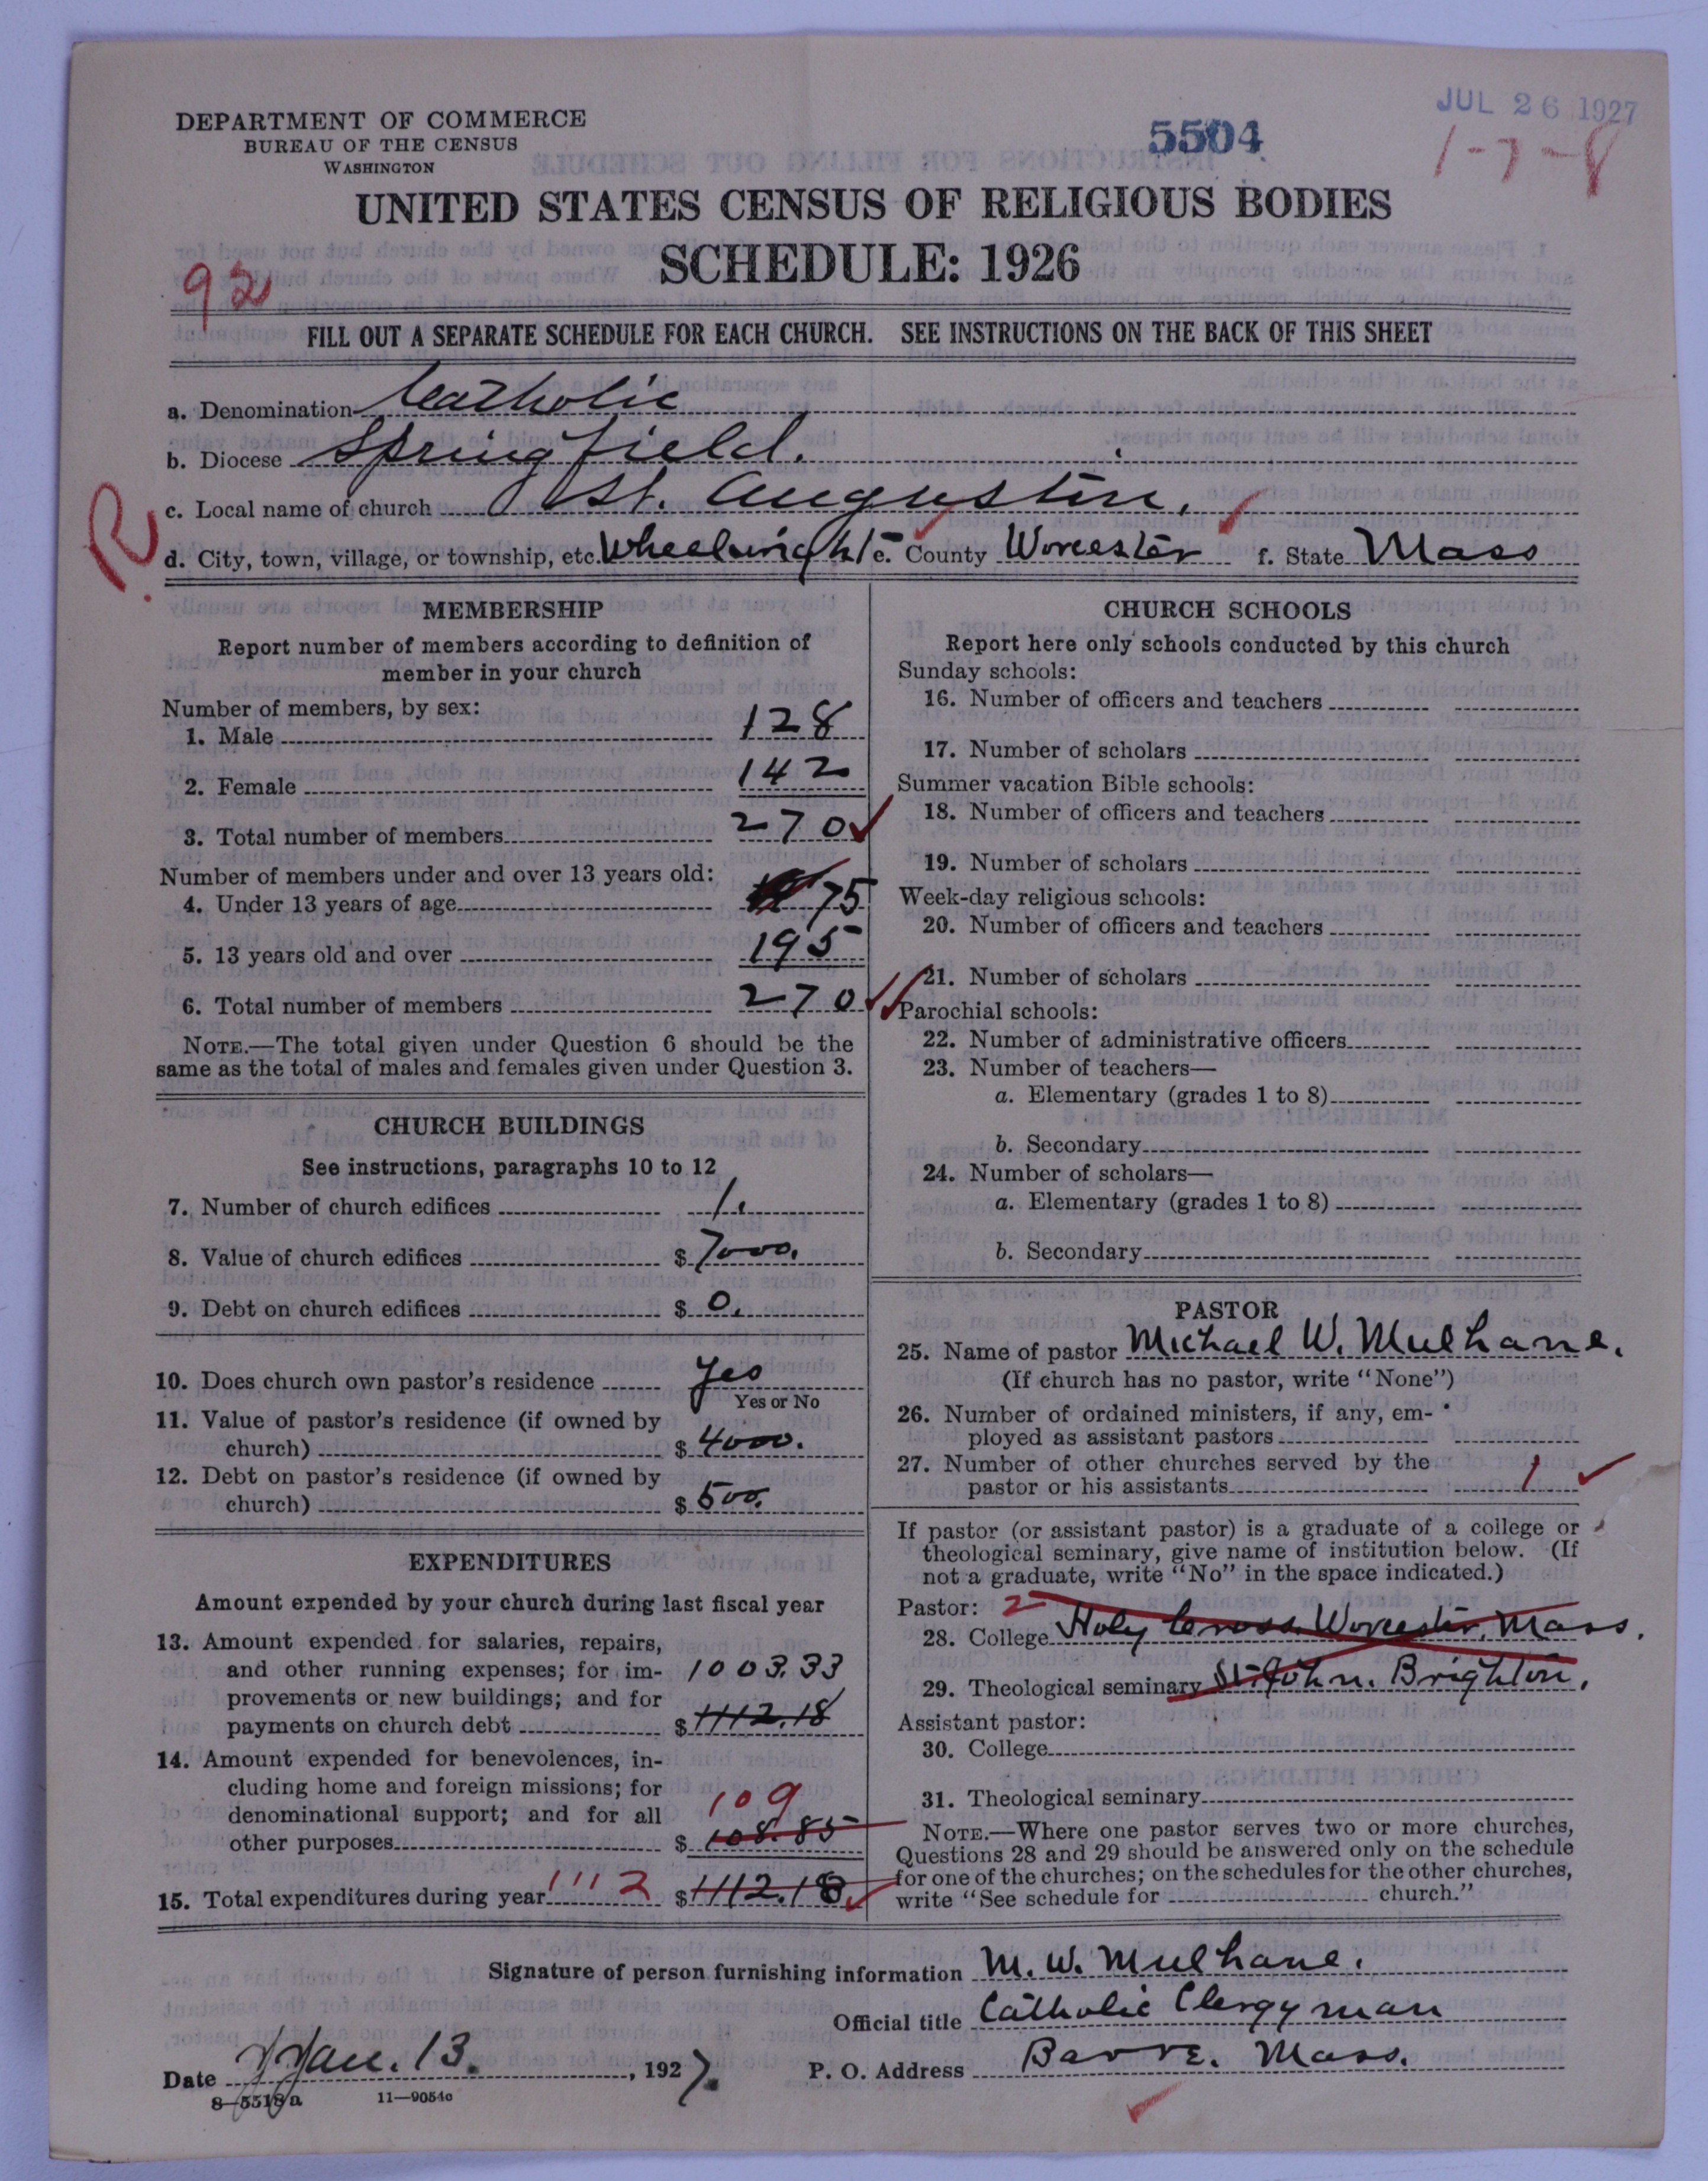 DEPARTMENT OF COMMERCE
BUREAU OF THE CENSUS
WASHINGTON
5504
JUL 26 1927
1-7-8
UNITED STATES CENSUS OF RELIGIOUS BODIES
SCHEDULE: 1926
92
FILL OUT A SEPARATE SCHEDULE FOR EACH CHURCH. SEE INSTRUCTIONS ON THE BACK OF THIS SHEET
a. Denomination Catholic
b. Diocese Springfield.
c. Local name of church St. Augustin.
R
d. City, town, village, or township, etc. e. County Worcester f. State Mass
MEMBERSHIP
Report number of members according to definition of
member in your church
Number of members, by sex:
1. Male 128
2. Female 142
3. Total number of members 270
Number of members under and over 13 years old:
4. Under 13 years of age 75
5. 13 years old and over 195
6. Total number of members 270
NOTE.—The total given under Question 6 should be the
same as the total of males and females given under Question 3.
CHURCH BUILDINGS
See instructions, paragraphs 10 to 12
7. Number of church edifices 1
8. Value of church edifices $ 7000.
9. Debt on church edifices $ 0.
10. Does church own pastor's residence Yes
Yes or No
11. Value of pastor's residence (if owned by
church) $ 4000.
12. Debt on pastor's residence (if owned by
church) $ 500.
EXPENDITURES
Amount expended by your church during last fiscal year
13. Amount expended for salaries, repairs,
and other running expenses; for im- 1003.33
provements or new buildings; and for
payments on church debt $ 1112.18
14. Amount expended for benevolences, in-
cluding home and foreign missions; for
denominational support; and for all 109
other purposes $ 108.85
15. Total expenditures during year 1112 $ 1112.18
CHURCH SCHOOLS
Report here only schools conducted by this church
Sunday schools:
16. Number of officers and teachers
17. Number of scholars
Summer vacation Bible schools:
18. Number of officers and teachers
19. Number of scholars
Week-day religious schools:
20. Number of officers and teachers
21. Number of scholars
Parochial schools:
22. Number of administrative officers
23. Number of teachers—
a. Elementary (grades 1 to 8)
b. Secondary
24. Number of scholars—
a. Elementary (grades 1 to 8)
b. Secondary
PASTOR
25. Name of pastor Michael W. Mulhane.
(If church has no pastor, write "None")
26. Number of ordained ministers, if any, em-
ployed as assistant pastors
27. Number of other churches served by the
pastor or his assistants 1
If pastor (or assistant pastor) is a graduate of a college or
theological seminary, give name of institution below. (If
not a graduate, write "No" in the space indicated.)
Pastor: 2
28. College Holy Cross. Worcester, Mass.
29. Theological seminary St. John. Brighton.
Assistant pastor:
30. College
31. Theological seminary
NOTE.—Where one pastor serves two or more churches,
Questions 28 and 29 should be answered only on the schedule
for one of the churches; on the schedules for the other churches,
write "See schedule for church."
Signature of person furnishing information M. W. Mulhane.
Official title Catholic Clergyman
Date Jan. 13. , 1927. P. O. Address Barre. Mass.
8—5518a 11—9054c